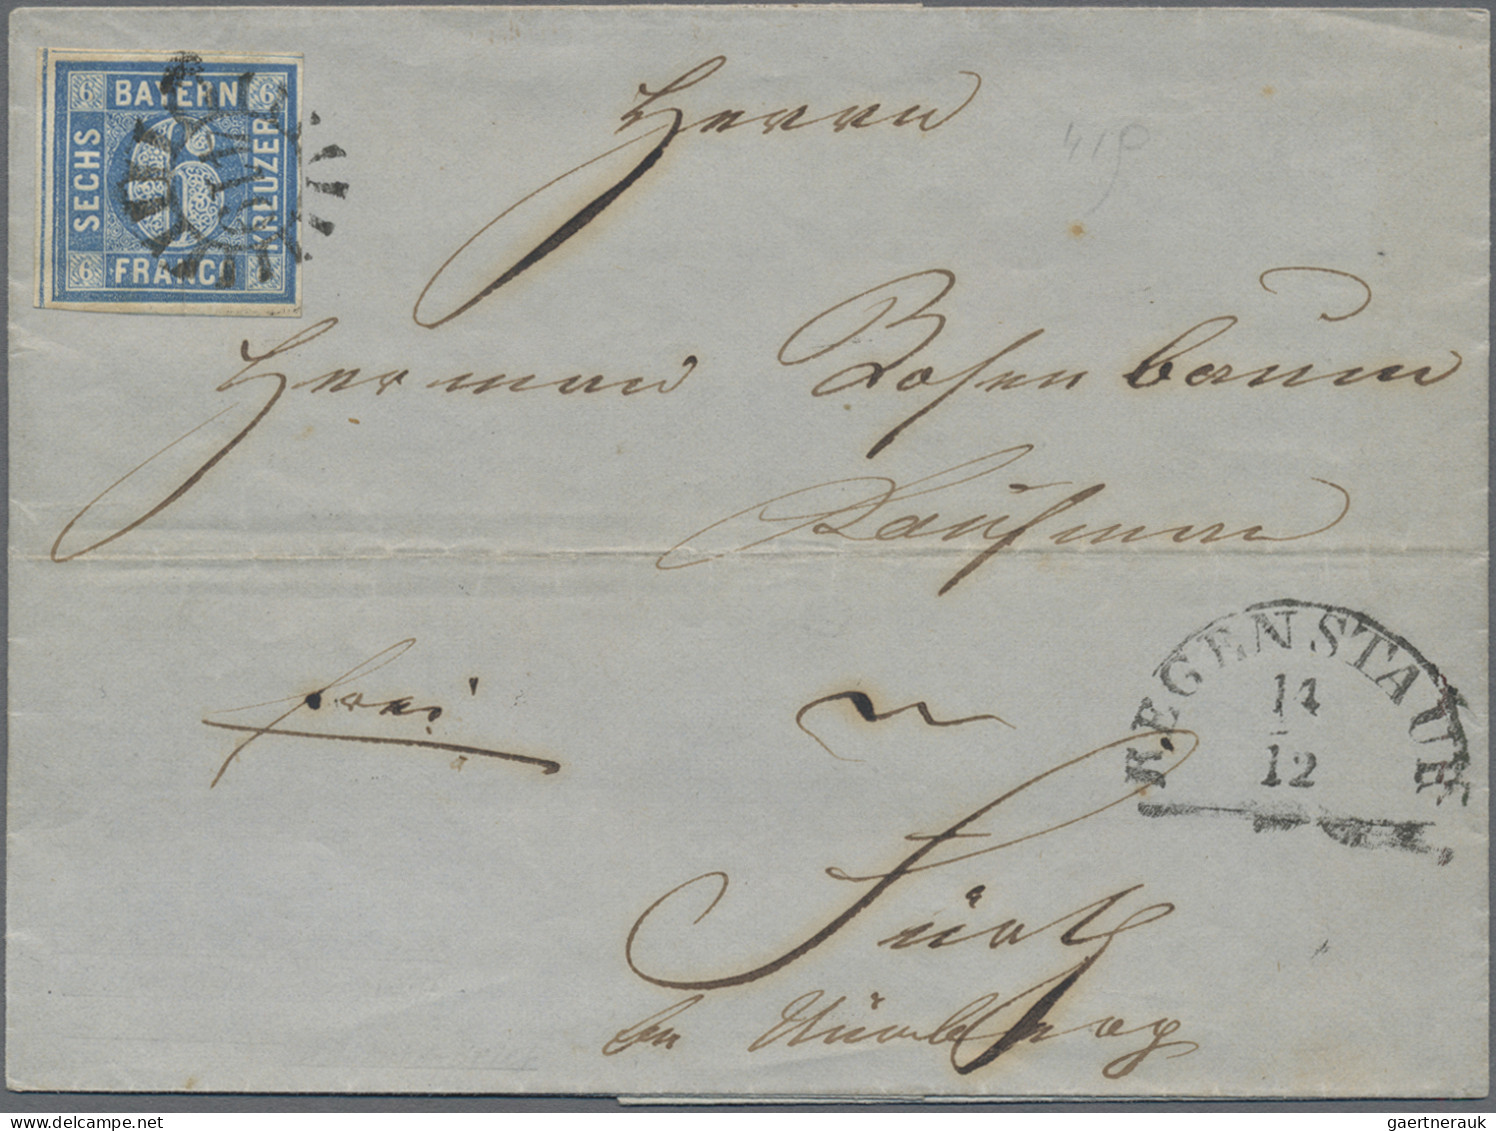 6 BAYERN 6
SECHS
KREUZER
6 FRANCO
Herrn
419
Herman Rosenbaum
Kaufman
frei
REGENSTAUF
14
12
Fürth
bei Nürnberg
gaertnerauk